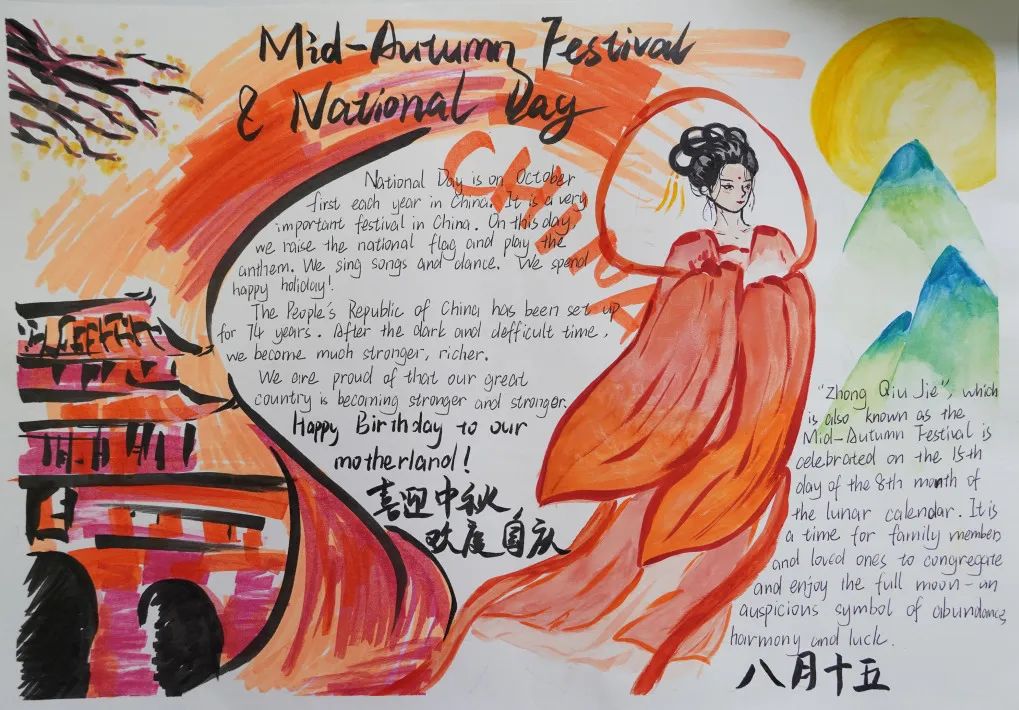 Mid-Autumn Festival
& National Day
CHINA
National Day is on October
first each year in China. It is a very
important festival in China. On this day,
we raise the national flag and play the
anthem. We sing songs and dance. We spend
happy holiday!
The People's Republic of China has been set up
for 74 years. After the dark and defficult time,
we become much stronger, richer.
We are proud of that our great
country is becoming stronger and stronger.
Happy Birthday to our
motherland!
喜迎中秋
欢度国庆
"Zhong Qiu Jie", which
is also known as the
Mid-Autumn Festival is
celebrated on the 15th
day of the 8th month of
the lunar calendar. It is
a time for family members
and loved ones to congregate
and enjoy the full moon - an
auspicious symbol of abundance,
harmony and luck.
八月十五